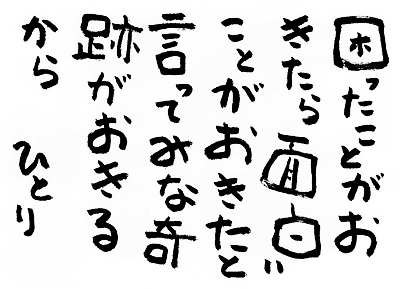 困ったことがお
きたら面白い
ことがおきたと
言ってみな奇
跡がおきる
から
ひとり